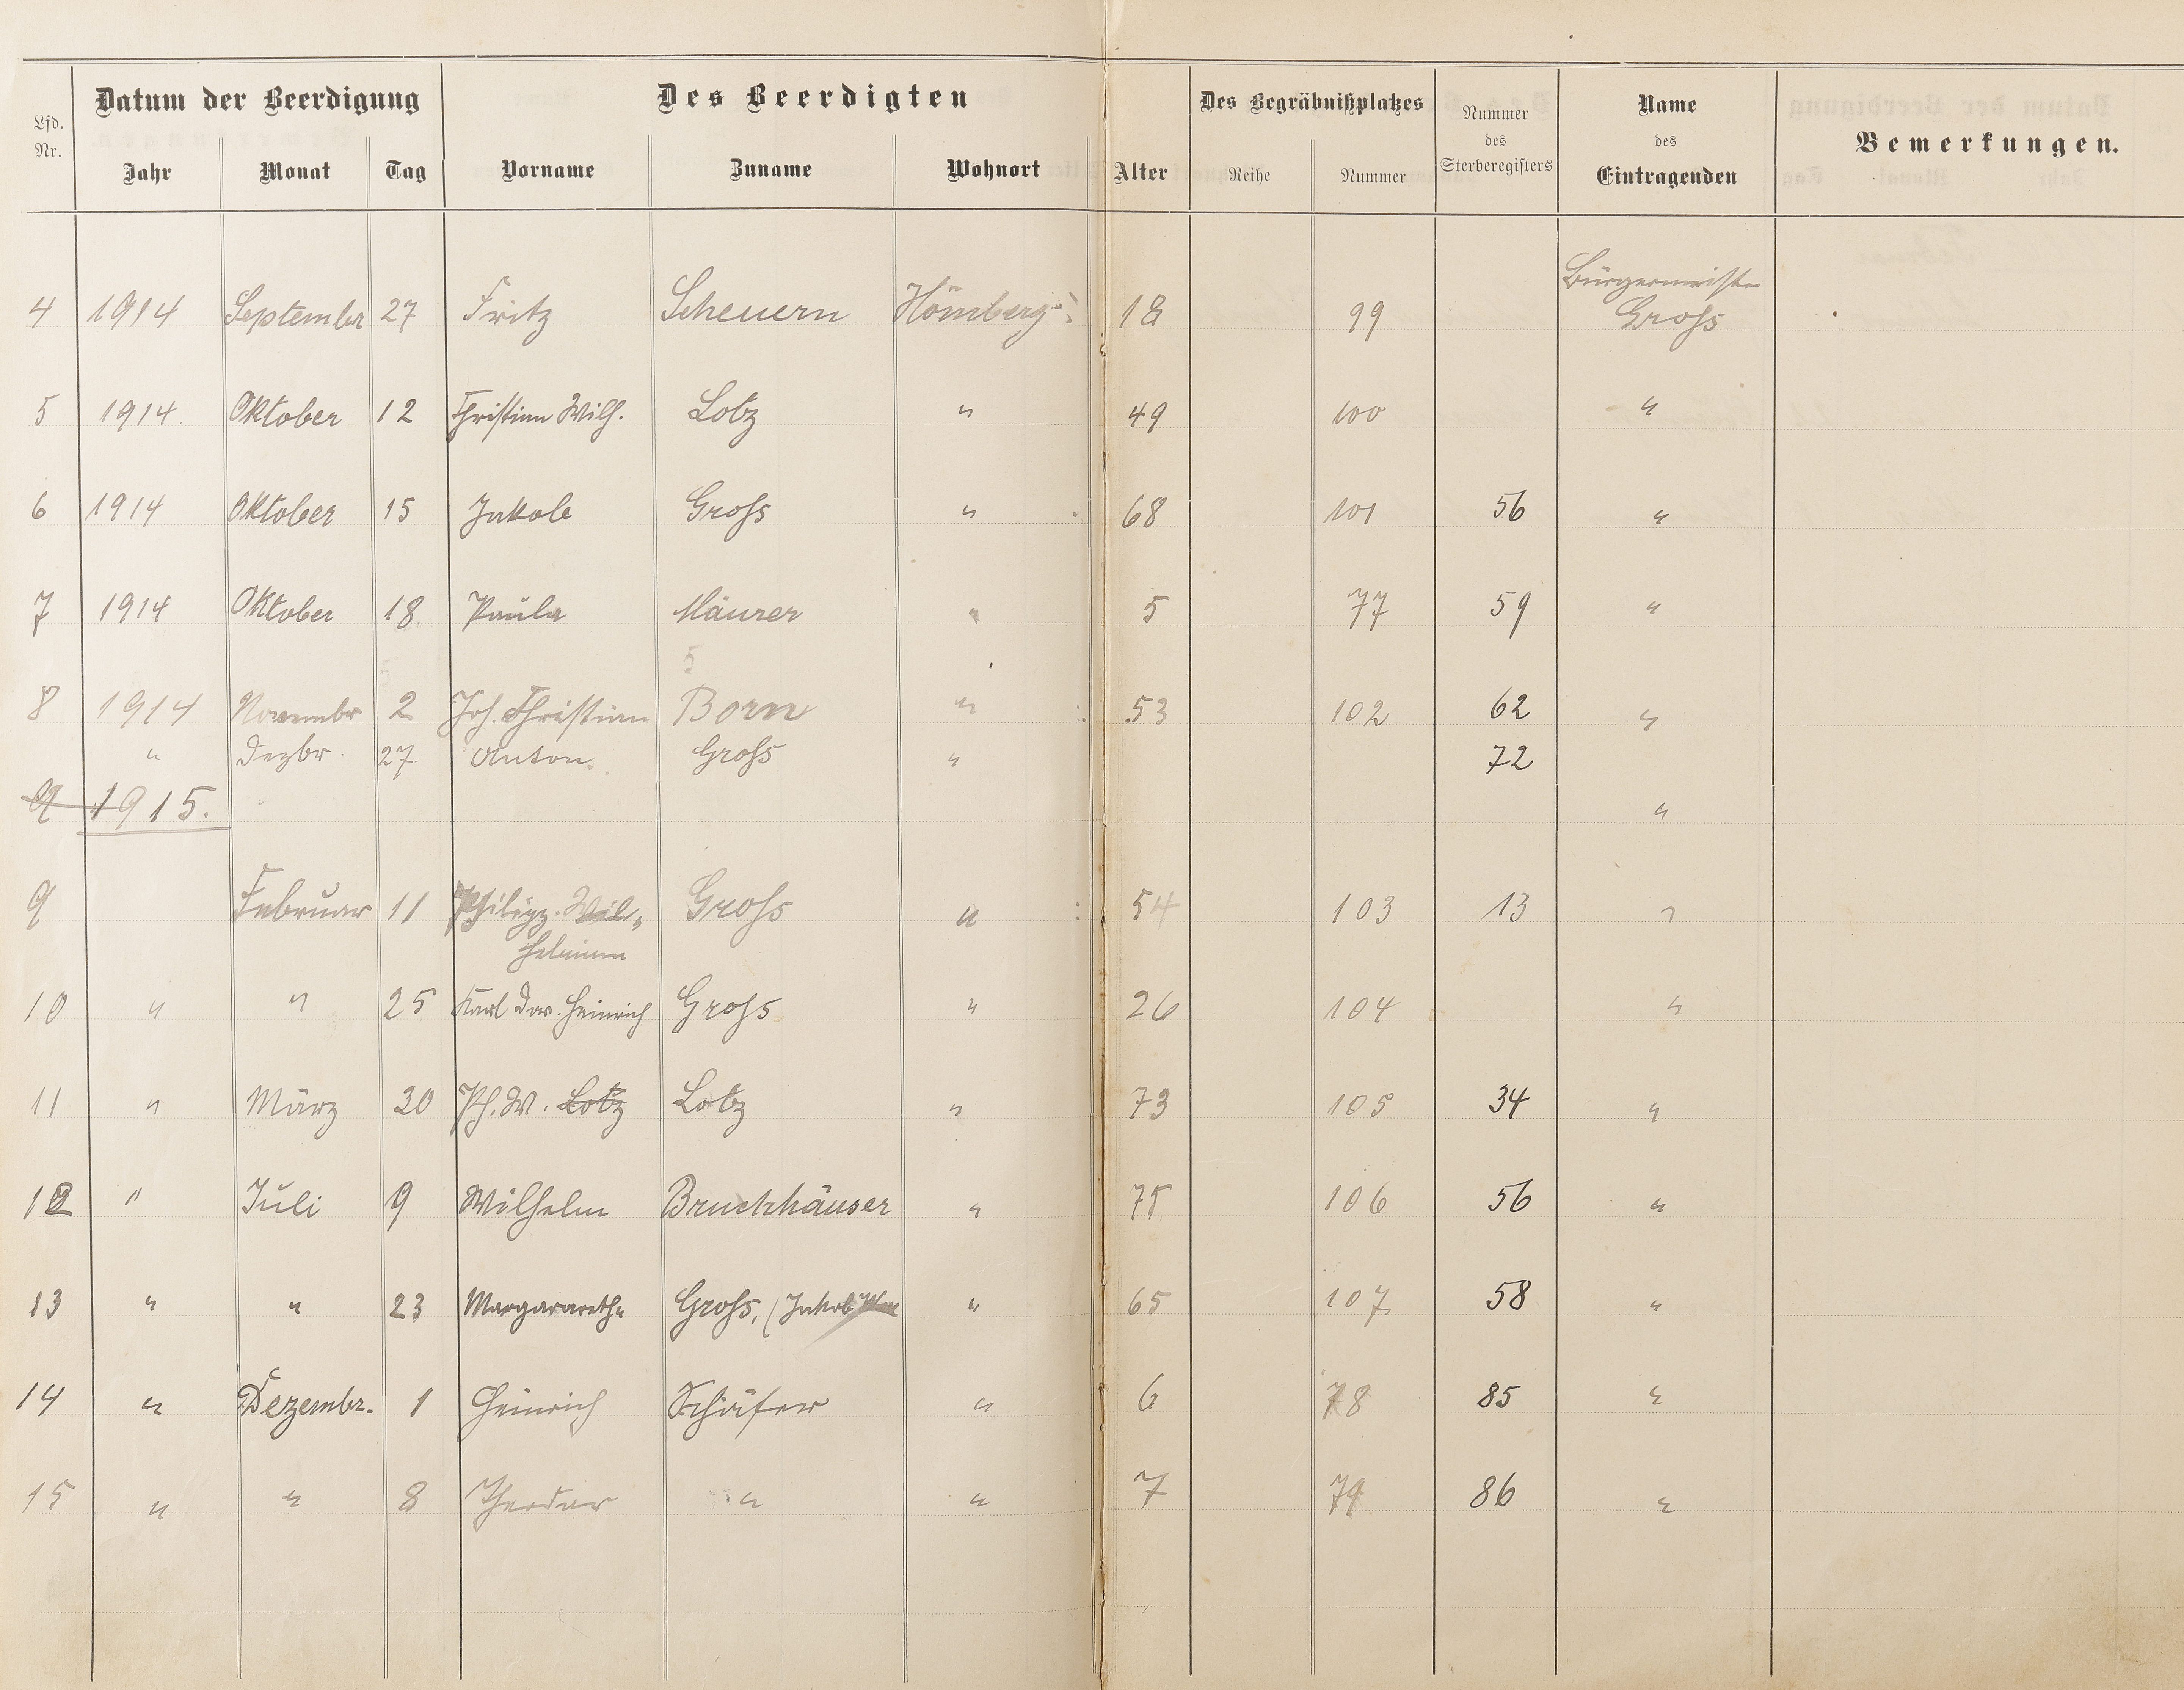 Lfd. Nr.
Datum der Beerdigung
Des Beerdigten
Des Begräbnißplatzes
Nummer des Sterberegisters
Name des Eintragenden
Bemerkungen.
Jahr Monat Tag Vorname Zuname Wohnort Alter Reihe Nummer
Bürgermeister
4 1914 September 27 Fritz Scheuern Hömberg 18 99 Gross
5 1914. Oktober 12 Christian Wilh. Lotz " 49 100 "
6 1914 Oktober 15 Jakob Gross " 68 101 56 "
7 1914 Oktober 18 Paula Mäurer " 5 77 59 "
8 1914 Novembr 2 Joh. Christian Born " 53 102 62 "
" Dezbr. 27 Anton Gross " 72
9 1915. "
9 Februar 11 Philipp. Wil-
helmine Gross " 54 103 13 "
10 " " 25 Karl Heinrich Gross " 26 104 "
11 " März 20 Ph. W. Lotz Lotz " 73 105 34 "
12 " Juli 9 Wilhelm Bruchhäuser " 75 106 56 "
13 " " 23 Margararethe Gross, (Jakob " 65 107 58 "
14 " Dezembr. 1 Heinrich Schäfer " 6 78 85 "
15 " " 8 Theodor " " 7 79 86 "